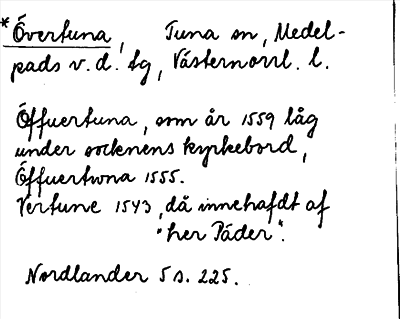 *Övertuna, Tuna sn, Medel-
pads v. d. tg, Västernorrl. l.
Öffuertuna, som år 1559 låg
under socknens kyrkebord,
Öffuertwna 1555.
Vertune 1543, då innehafdt af
"her Päder".
Nordlander 5 s. 225.